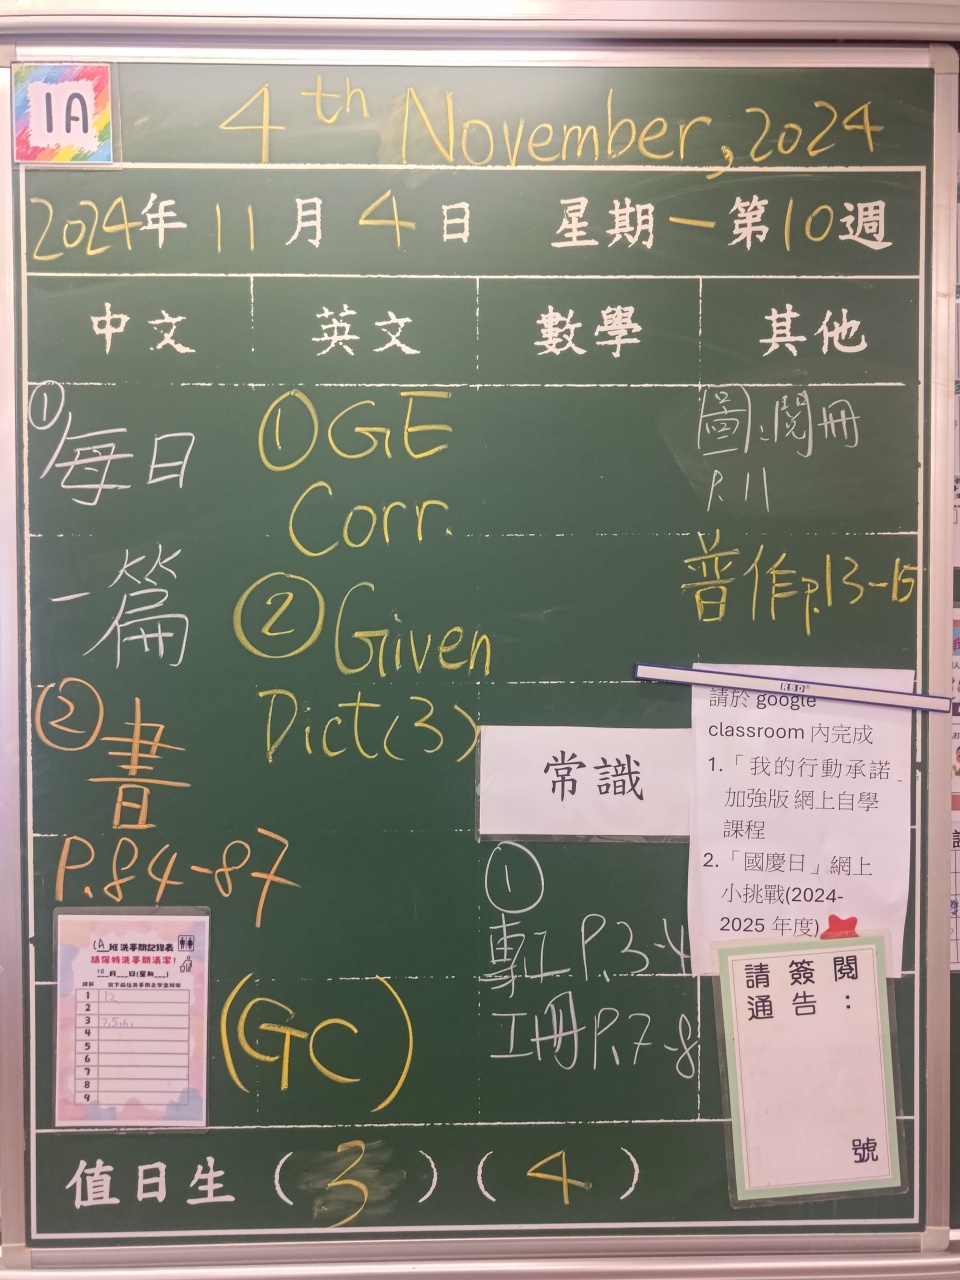 1A
4th November, 2024
2024年 11月 4日 星期一 第10週
中文 英文 數學 其他
①每日
一篇
②書
P.84-87
①GE
Corr.
②Given
Dict(3)
(GTC)
圖:閱冊
P.11
普作p.13-15
常識
①
專工 P.3-4
工冊 P.7-8
R&D
請於 google
classroom 內完成
1.「我的行動承諾
加強版 網上自學
課程
2.「國慶日」網上
小挑戰(2024-
2025 年度)
請簽閱
通告：
號
1A 班洗手間記錄表
請保持洗手間清潔!
10月__日(星期__)
1 12
2
3 7,5,6,
4
5
6
7
8
9
值日生 ( 3 ) ( 4 )